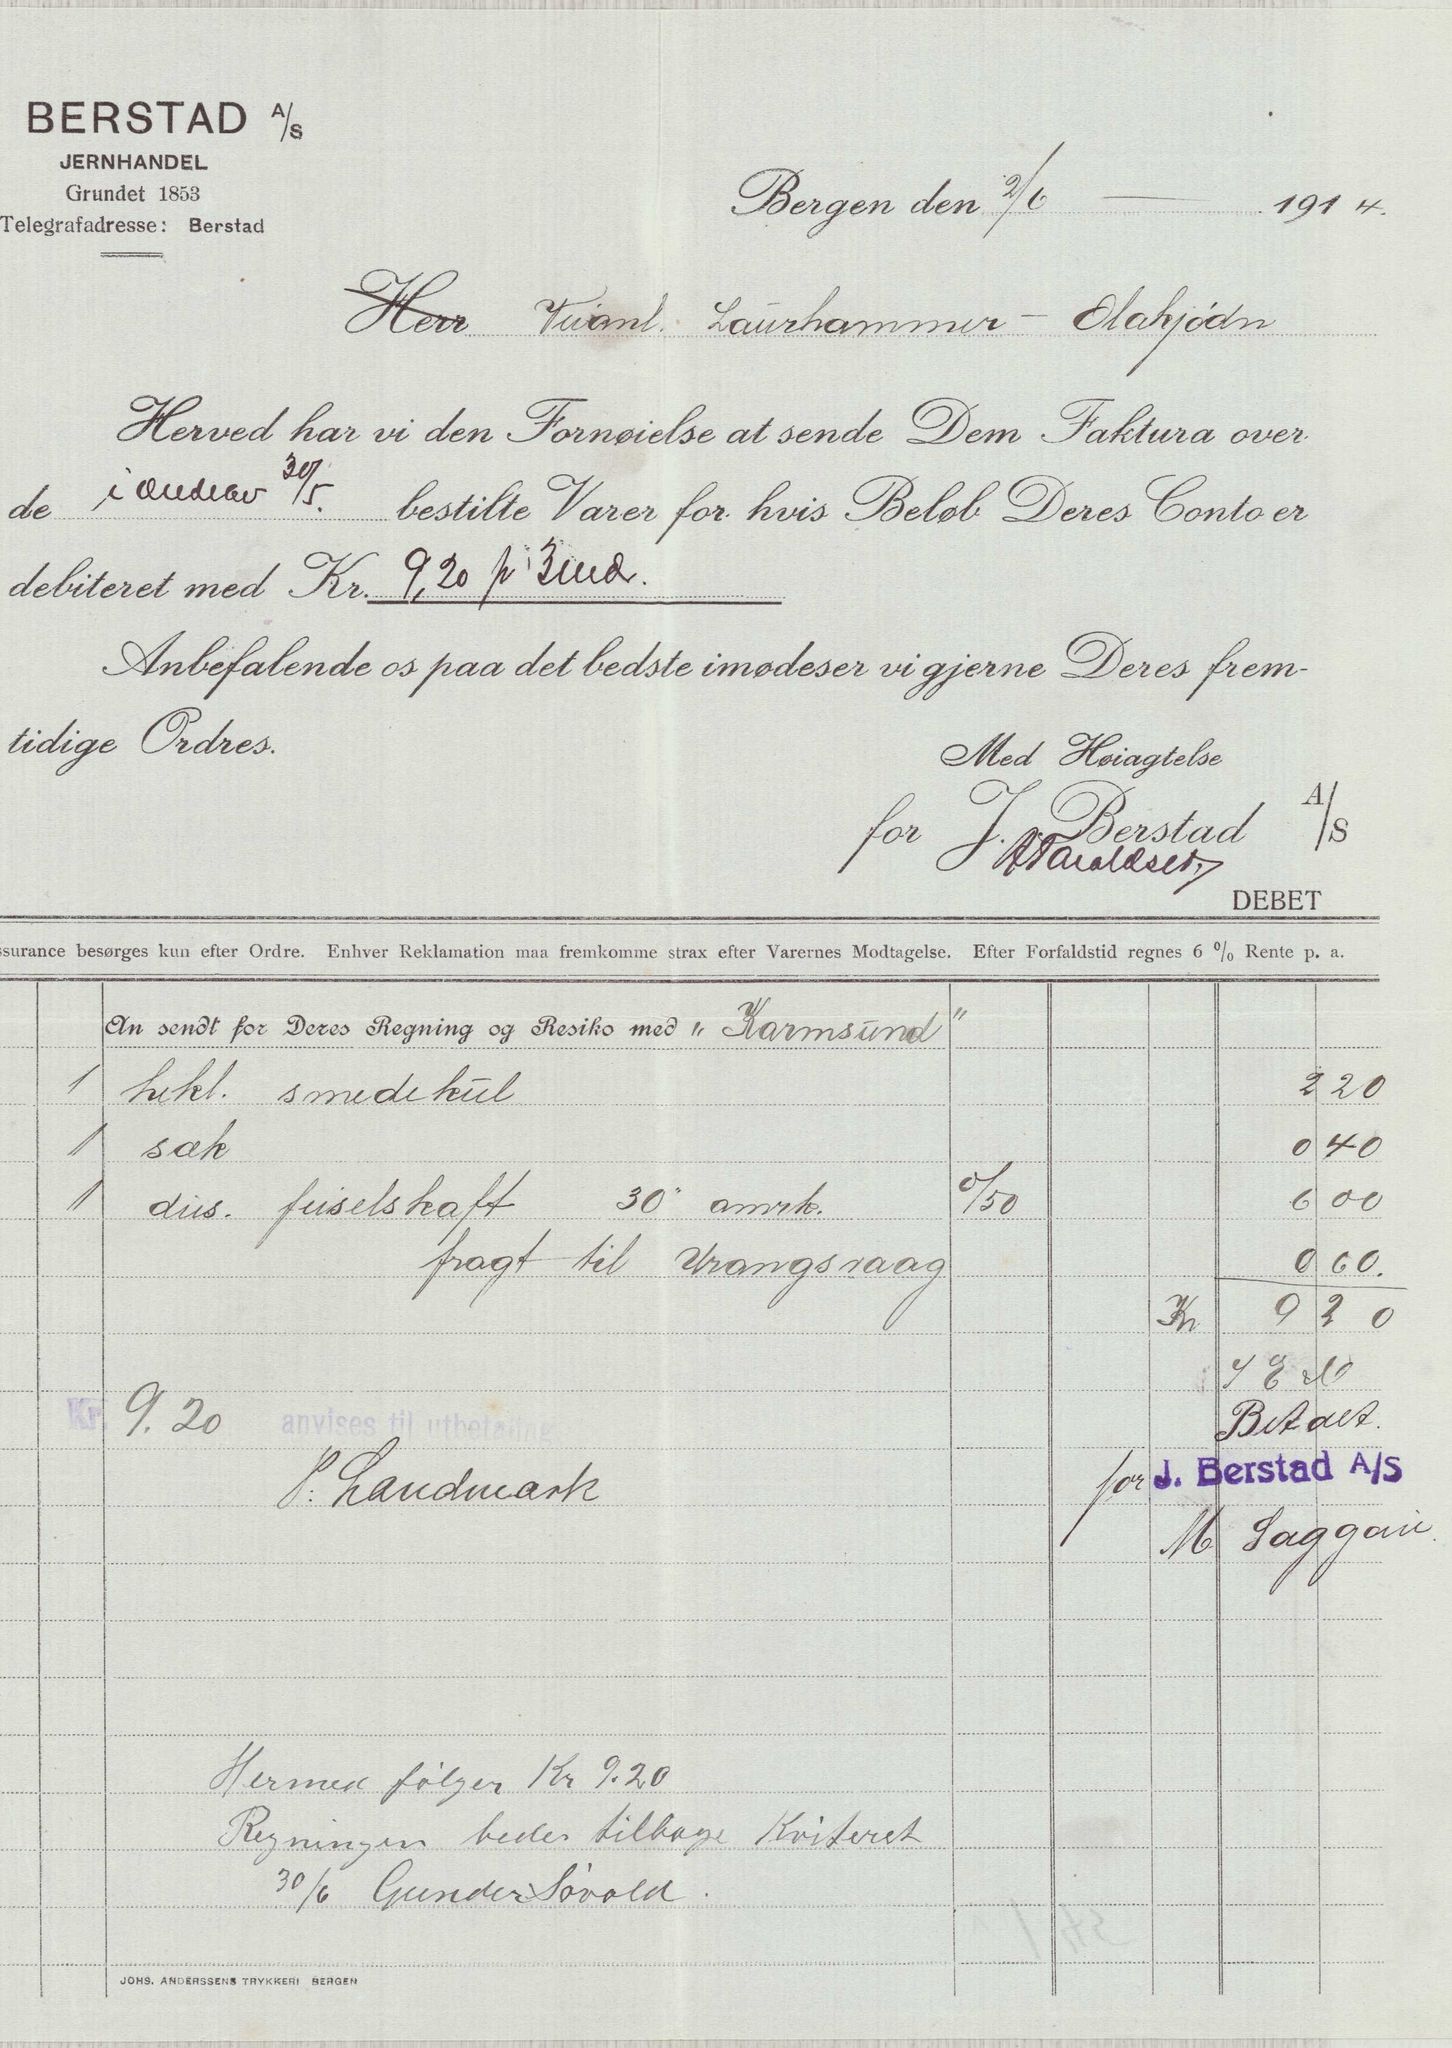 BERSTAD A/S
JERNHANDEL
Grundet 1853
Telegrafadresse: Berstad
Bergen den 2/6 1914.
Herr Veianl. Laurhammer - Olakjødn
Herved har vi den Fornøielse at sende Dem Faktura over
de 30/5. bestilte Varer for hvis Beløb Deres Conto er
debiteret med Kr. 9,20 pr 3 md.
Anbefalende os paa det bedste imødeser vi gjerne Deres frem-
tidige Ordres.
Med Høiagtelse
for J. Berstad A/S
Haraldsen
DEBET
ssurance besørges kun efter Ordre. Enhver Reklamation maa fremkomme strax efter Varernes Modtagelse. Efter Forfaldstid regnes 6 % Rente p. a.
An sendt for Deres Regning og Resiko med "Karmsund"
1 hekl. smedekul 2 20
1 sæk 0 40
1 dus. feiselskaft 30" amrk. 0/50 6 00
fragt til Vrangsvaag 0 60.
Kr 9 20
Betalt.
Kr. 9.20 anvises til utbetaling
for J. Berstad A/S
P. Landmark
M
Hermed følger Kr 9.20
Regningen bedes tilbage Kviteret
30/6 Gunder Løvold.
JOHS. ANDERSSENS TRYKKERI BERGEN